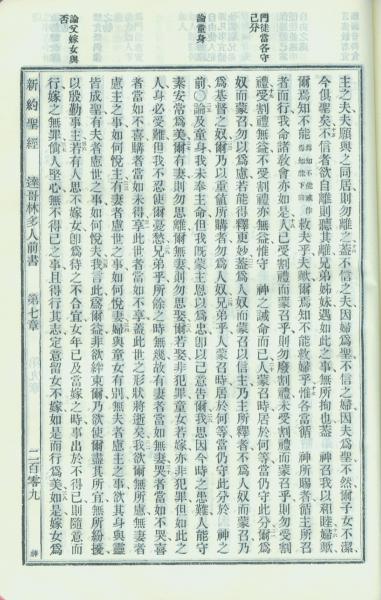 門徒當各守
己分
論童身
論父嫁女與
否
主之夫夫願與之同居則勿離之蓋不信之夫因婦為聖不信之婦因夫為聖不然爾子女不潔
今俱聖矣不信者欲自離則聽其離兄弟姊妹遇如此之事無所拘也蓋 神召我以和睦婦歟
爾焉知不能救夫乎夫歟爾焉知不能救婦乎惟各當循 神所賜者循主所召
者而行我命諸教會亦如是人已受割禮而蒙召乎則勿廢割禮未受割禮而蒙召乎則勿受割
禮受割禮無益不受割禮亦無益惟守 神之誡命而已人蒙召時居於何等當仍守此分爾為
奴而蒙召勿以為慮若能得釋更妙蓋為人奴而蒙召以信主乃主所釋者不為人奴而蒙召乃
為基督之奴爾乃以重値所購者勿為人奴兄弟乎人蒙召時居於何等當仍守此分於 神之
前○論及童身我未奉主命但我既蒙主恩以為忠卽以己意告爾我思因今時之患難人能守
素安常為美爾有妻則勿思離爾無妻則勿思娶爾若娶非犯罪童女若嫁亦非犯罪但如此之
人身必受難但我不忍使爾憂愁兄弟乎所餘之時無幾故有妻者當如無妻哭者當如不哭喜
者當如不喜購者當如未得享此世者當如不享蓋此世之形狀將逝矣我欲爾無所慮無妻者
慮主之事如何悅主有妻者慮世之事如何悅妻婦與童女有別無夫者慮主之事欲其身與靈
皆成聖有夫者慮世之事如何悅夫我言此為爾益非欲絆束爾乃欲使爾盡其所宜無所紛擾
以殷勤事主若有人思不嫁女卽為待之不合宜女年已及當嫁之時事出於不得已則隨意而
行嫁之無罪倘人堅心無不得已之事且得行其志定意留女不嫁如是而行為美如是嫁女為
新約聖經 達哥林多人前書 第七章 二百零九